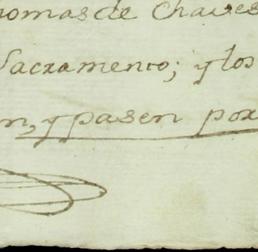 homas de Chaves
Sacramento; y los
n, y pasen por